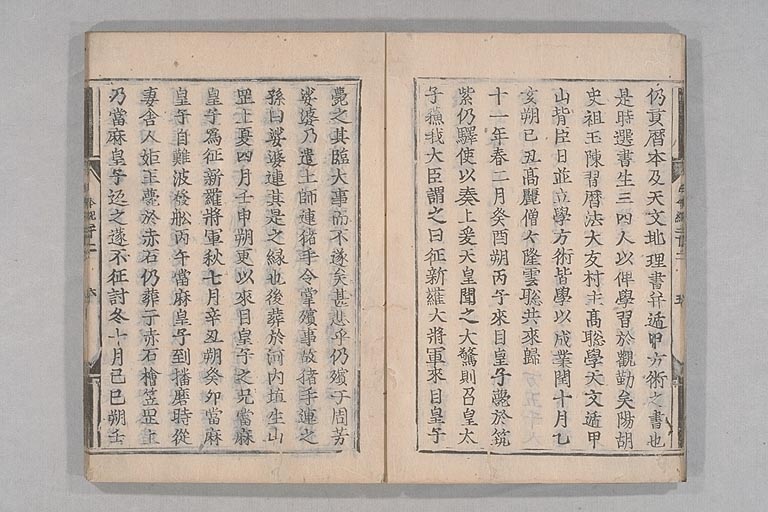 仍貢暦本及天文地理書并遁甲方術之書也
是時選書生三四人以俾學習於觀勤矣陽胡
史祖玉陳習暦法大友村主髙聡學天文遁甲
山背臣日並立學方術皆學以成業閏十月乙
亥朔己丑髙麗僧々隆雲聡共來歸
十一年春二月癸酉朔丙子來目皇子薨於筑
紫仍驛使以奏上爰天皇聞之大驚則召皇太
子蘓我大臣謂之曰征新羅大將軍來目皇子
薨之其臨大事而不遂矣甚悲乎仍殯于周芳
娑婆乃遣土師連猪手令掌殯事故猪手連之
孫曰娑婆連其是之縁也後葬於河内埴生山
罡上夏四月壬申朔更以來目皇子之兄當麻
皇子為征新羅將軍秋七月辛丑朔癸卯當麻
皇子自難波發舩丙午當麻皇子到播磨時從
妻舎人姫王薨於赤石仍葬于赤石檜笠罡上
乃當麻皇子返之遂不征討冬十月己巳朔壬